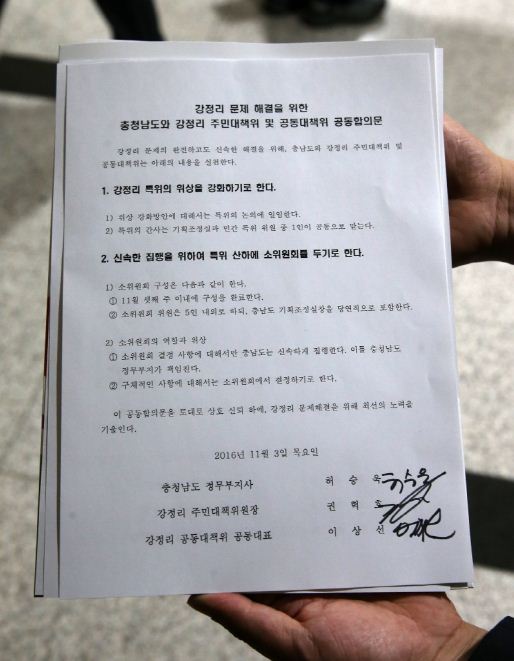 강정리 문제 해결을 위한
충청남도와 강정리 주민대책위 및 공동대책위 공동합의문
강정리 문제의 완전하고도 신속한 해결을 위해, 충남도와 강정리 주민대책위 및
공동대책위는 아래의 내용을 실천한다.
1. 강정리 특위의 위상을 강화하기로 한다.
1) 위상 강화방안에 대해서는 특위의 논의에 일임한다.
2) 특위의 간사는 기획조정실과 민간 특위 위원 중 1인이 공동으로 맡는다.
2. 신속한 집행을 위하여 특위 산하에 소위원회를 두기로 한다.
1) 소위원회 구성은 다음과 같이 한다.
① 11월 셋째 주 이내에 구성을 완료한다.
② 소위원회 위원은 5인 내외로 하되, 충남도 기획조정실장을 당연직으로 포함한다.
2) 소위원회의 역할과 위상
① 소위원회 결정 사항에 대해서만 충남도는 신속하게 집행한다. 이를 충청남도
정무부지사가 책임진다.
② 구체적인 사항에 대해서는 소위원회에서 결정하기로 한다.
이 공동합의문을 토대로 상호 신뢰 하에, 강정리 문제해결은 위해 최선의 노력을
기울인다.
2016년 11월 3일 목요일
충청남도 정무부지사 허 승 욱 허승욱
강정리 주민대책위원장 권 혁 호
강정리 공동대책위 공동대표 이 상 선